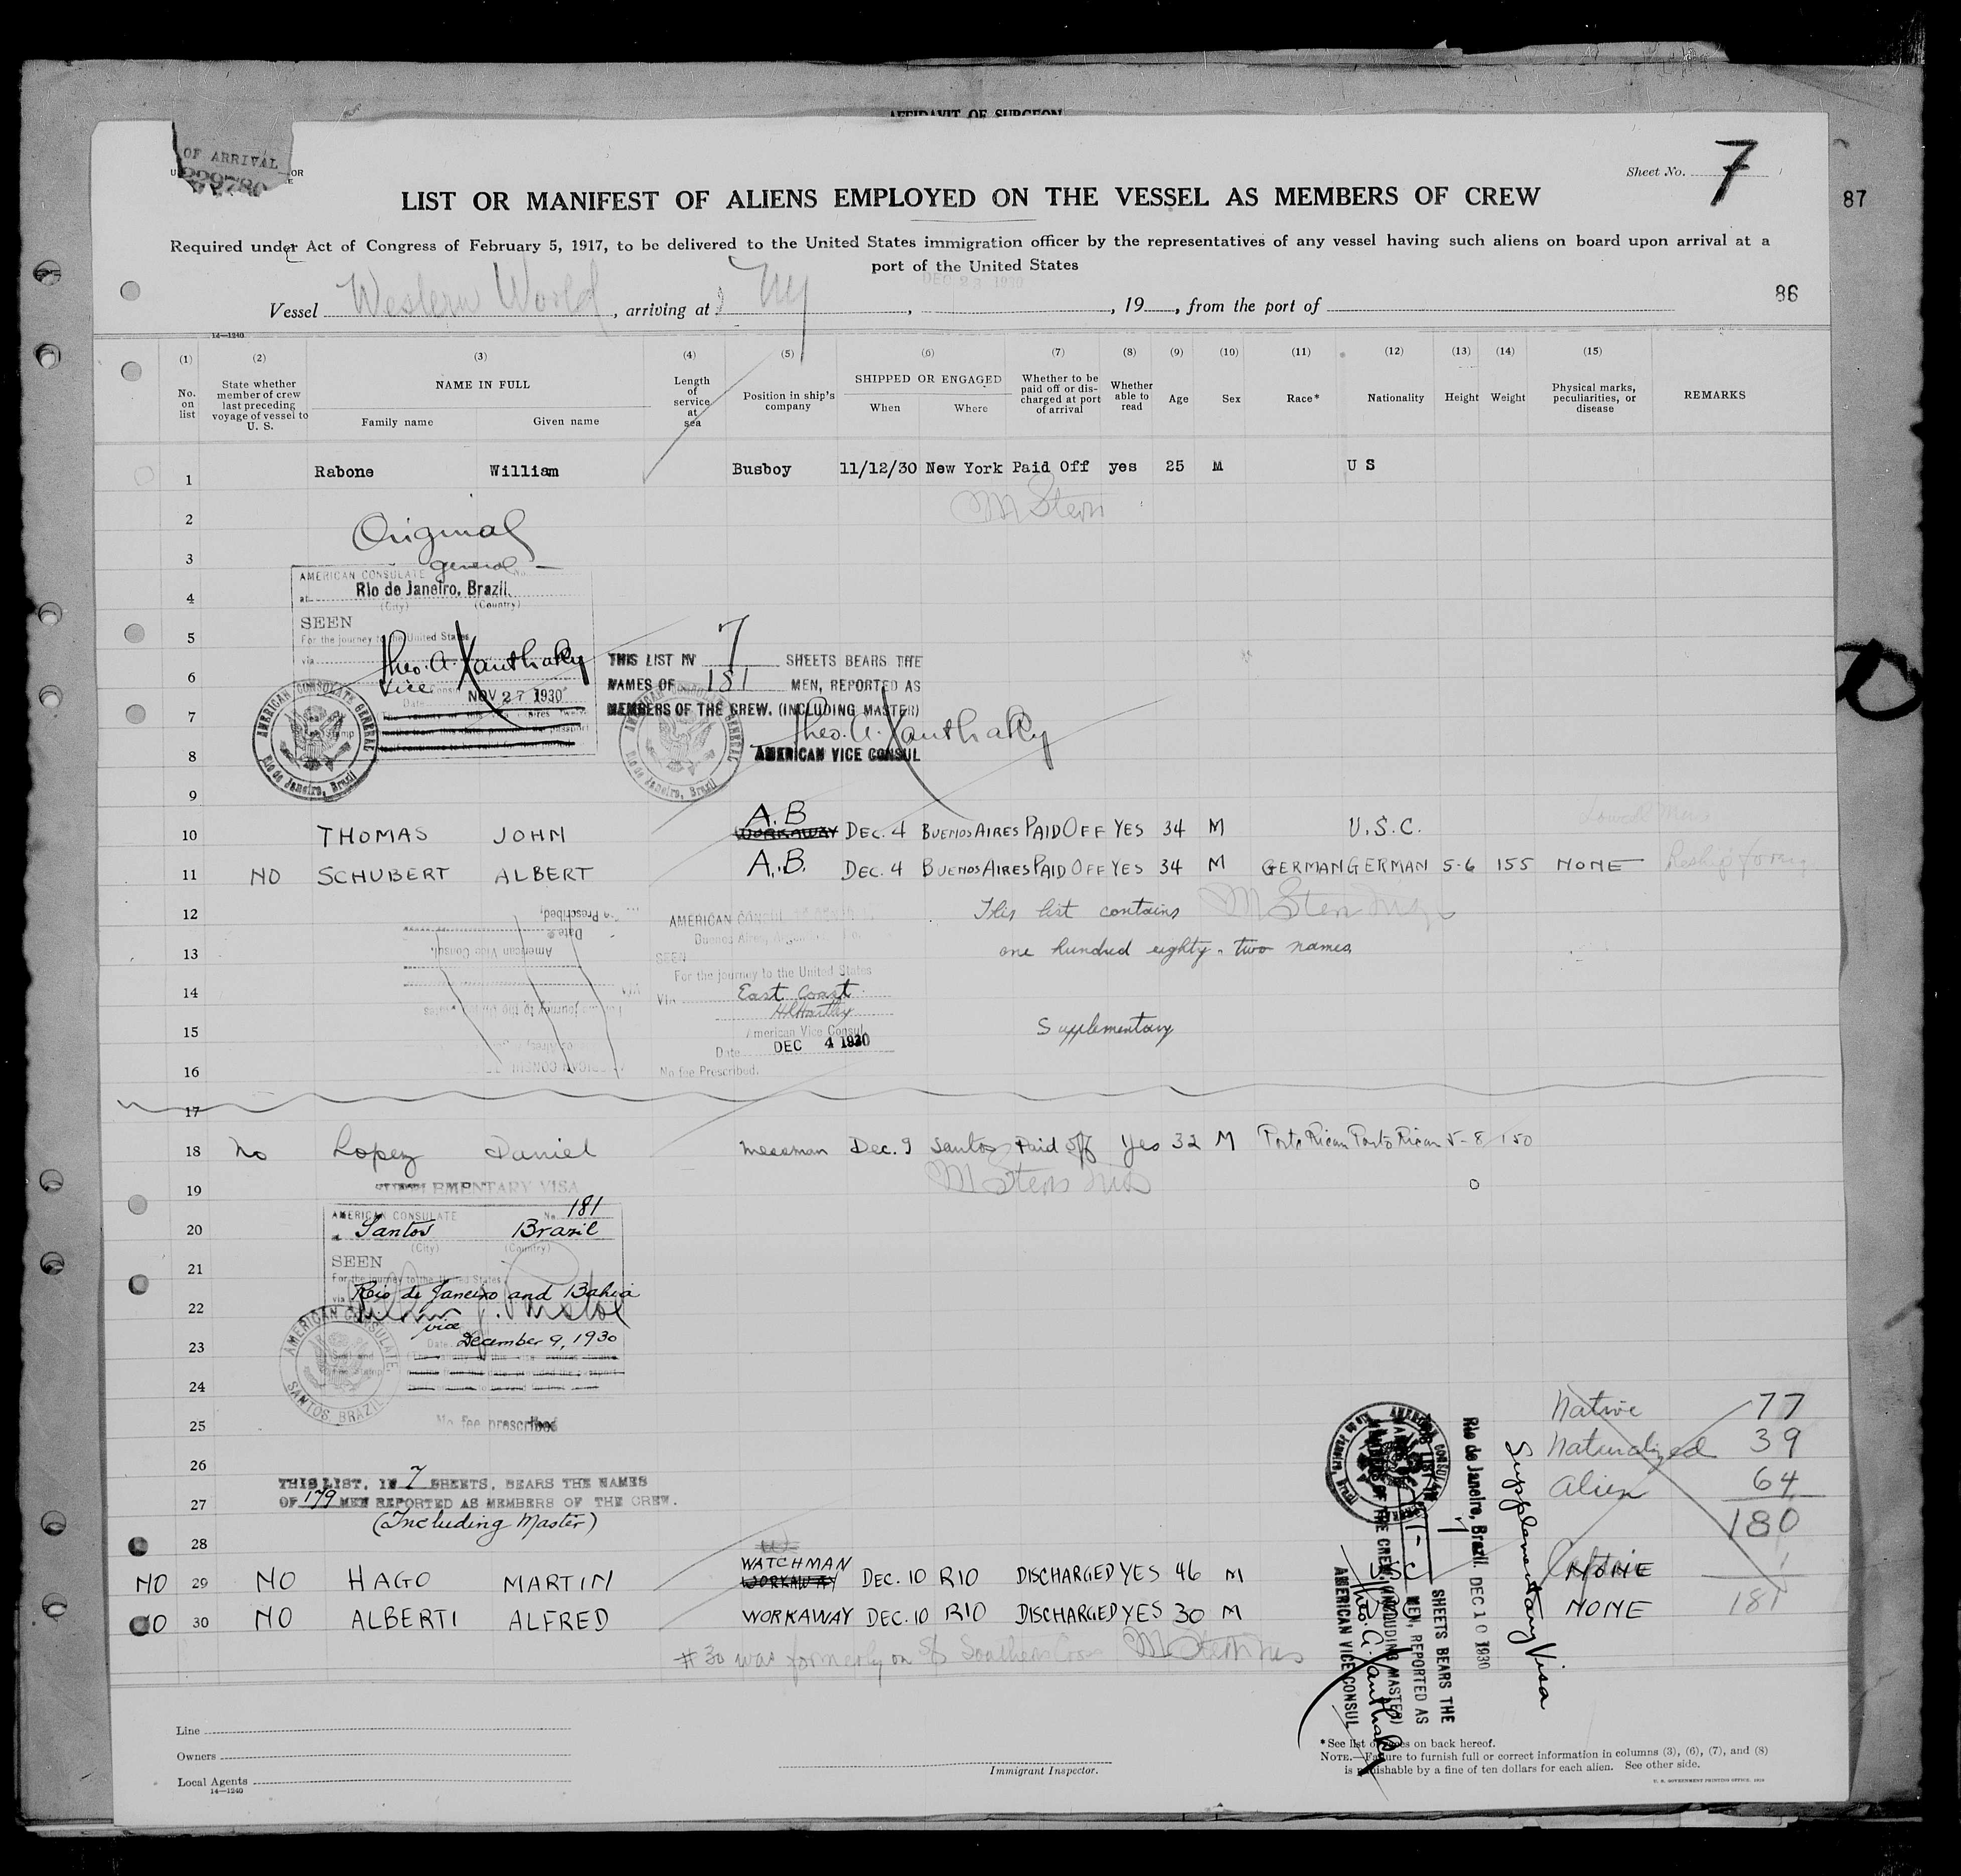 AFFIDAVIT OF SURGEON
OF ARRIVAL
Sheet No. 7
87
LIST OR MANIFEST OF ALIENS EMPLOYED ON THE VESSEL AS MEMBERS OF CREW
Required under Act of Congress of February 5, 1917, to be delivered to the United States immigration officer by the representatives of any vessel having such aliens on board upon arrival at a
port of the United States
DEC 23 1930
86
Vessel Western World, arriving at NY, , 19 , from the port of
14—1240
(1) (2) (3) (4) (5) (6) (7) (8) (9) (10) (11) (12) (13) (14) (15)
No. on list
State whether member of crew last preceding voyage of vessel to U. S.
NAME IN FULL
Family name Given name
Length of service at sea
Position in ship's company
SHIPPED OR ENGAGED
When Where
Whether to be paid off or discharged at port of arrival
Whether able to read
Age
Sex
Race*
Nationality
Height
Weight
Physical marks, peculiarities, or disease
REMARKS
1 Rabone William Busboy 11/12/30 New York Paid Off yes 25 M U S
2 M Stern
Original
3
general
AMERICAN CONSULATE
4 at Rio de Janeiro, Brazil.
(City) (Country)
SEEN
5 For the journey to the United States
via
Theo. A. Xanthaky
6 Vice Consul
Date NOV 27 1930
AMERICAN CONSULATE GENERAL
Rio de Janeiro, Brazil
THIS LIST IN 7 SHEETS BEARS THE
NAMES OF 181 MEN, REPORTED AS
7 MEMBERS OF THE CREW. (INCLUDING MASTER)
Theo. A. Xanthaky
8 AMERICAN VICE CONSUL
AMERICAN CONSULATE GENERAL
Rio de Janeiro, Brazil
9
A.B
10 THOMAS JOHN WORKAWAY DEC. 4 BUENOS AIRES PAID OFF YES 34 M U.S.C.
11 NO SCHUBERT ALBERT A.B. DEC. 4 BUENOS AIRES PAID OFF YES 34 M GERMAN GERMAN 5-6 155 NONE Reship foreign
12 This list contains
M Stern
13 one hundred eighty-two names
AMERICAN CONSUL
Buenos Aires,
SEEN
For the journey to the United States
14 Via East Coast
15 Supplementary
American Vice Consul
Date DEC 4 1930
16 No fee Prescribed.
Prescribed
Date
American Vice Consul
17
18 No Lopez Daniel messman Dec. 9 Santos Paid off Yes 32 M Porto Rican Porto Rican 5-8 150
19 M Stern Ins
SUPPLEMENTARY VISA
AMERICAN CONSULATE No. 181
20 at Santos Brazil
(City) (Country)
21 SEEN
For the journey to the United States
22 via Rio de Janeiro and Bahia
vice
23 Date December 9, 1930
24
AMERICAN CONSULATE
SANTOS, BRAZIL
25 No fee prescribed
26 THIS LIST, IN 7 SHEETS, BEARS THE NAMES
27 OF 179 MEN REPORTED AS MEMBERS OF THE CREW.
(Including Master)
28
WATCHMAN
NO 29 NO HAGO MARTIN WORKAWAY DEC. 10 RIO DISCHARGED YES 46 M NONE
NO 30 NO ALBERTI ALFRED WORKAWAY DEC. 10 RIO DISCHARGED YES 30 M NONE
# 30 was formerly on S/S Southern Cross M Stern Ins
Native 77
Naturalized 39
Alien 64
180
1
181
Supplementary Visa
Rio de Janeiro, Brazil. DEC 10 1930
SHEETS BEARS THE
MEN, REPORTED AS
MEMBERS OF THE CREW. (INCLUDING MASTER)
Theo. A. Xanthaky
AMERICAN VICE CONSUL
Line
Owners
Local Agents
14—1240
Immigrant Inspector.
*See list of races on back hereof.
NOTE.—Failure to furnish full or correct information in columns (3), (6), (7), and (8)
is punishable by a fine of ten dollars for each alien. See other side.
U. S. GOVERNMENT PRINTING OFFICE